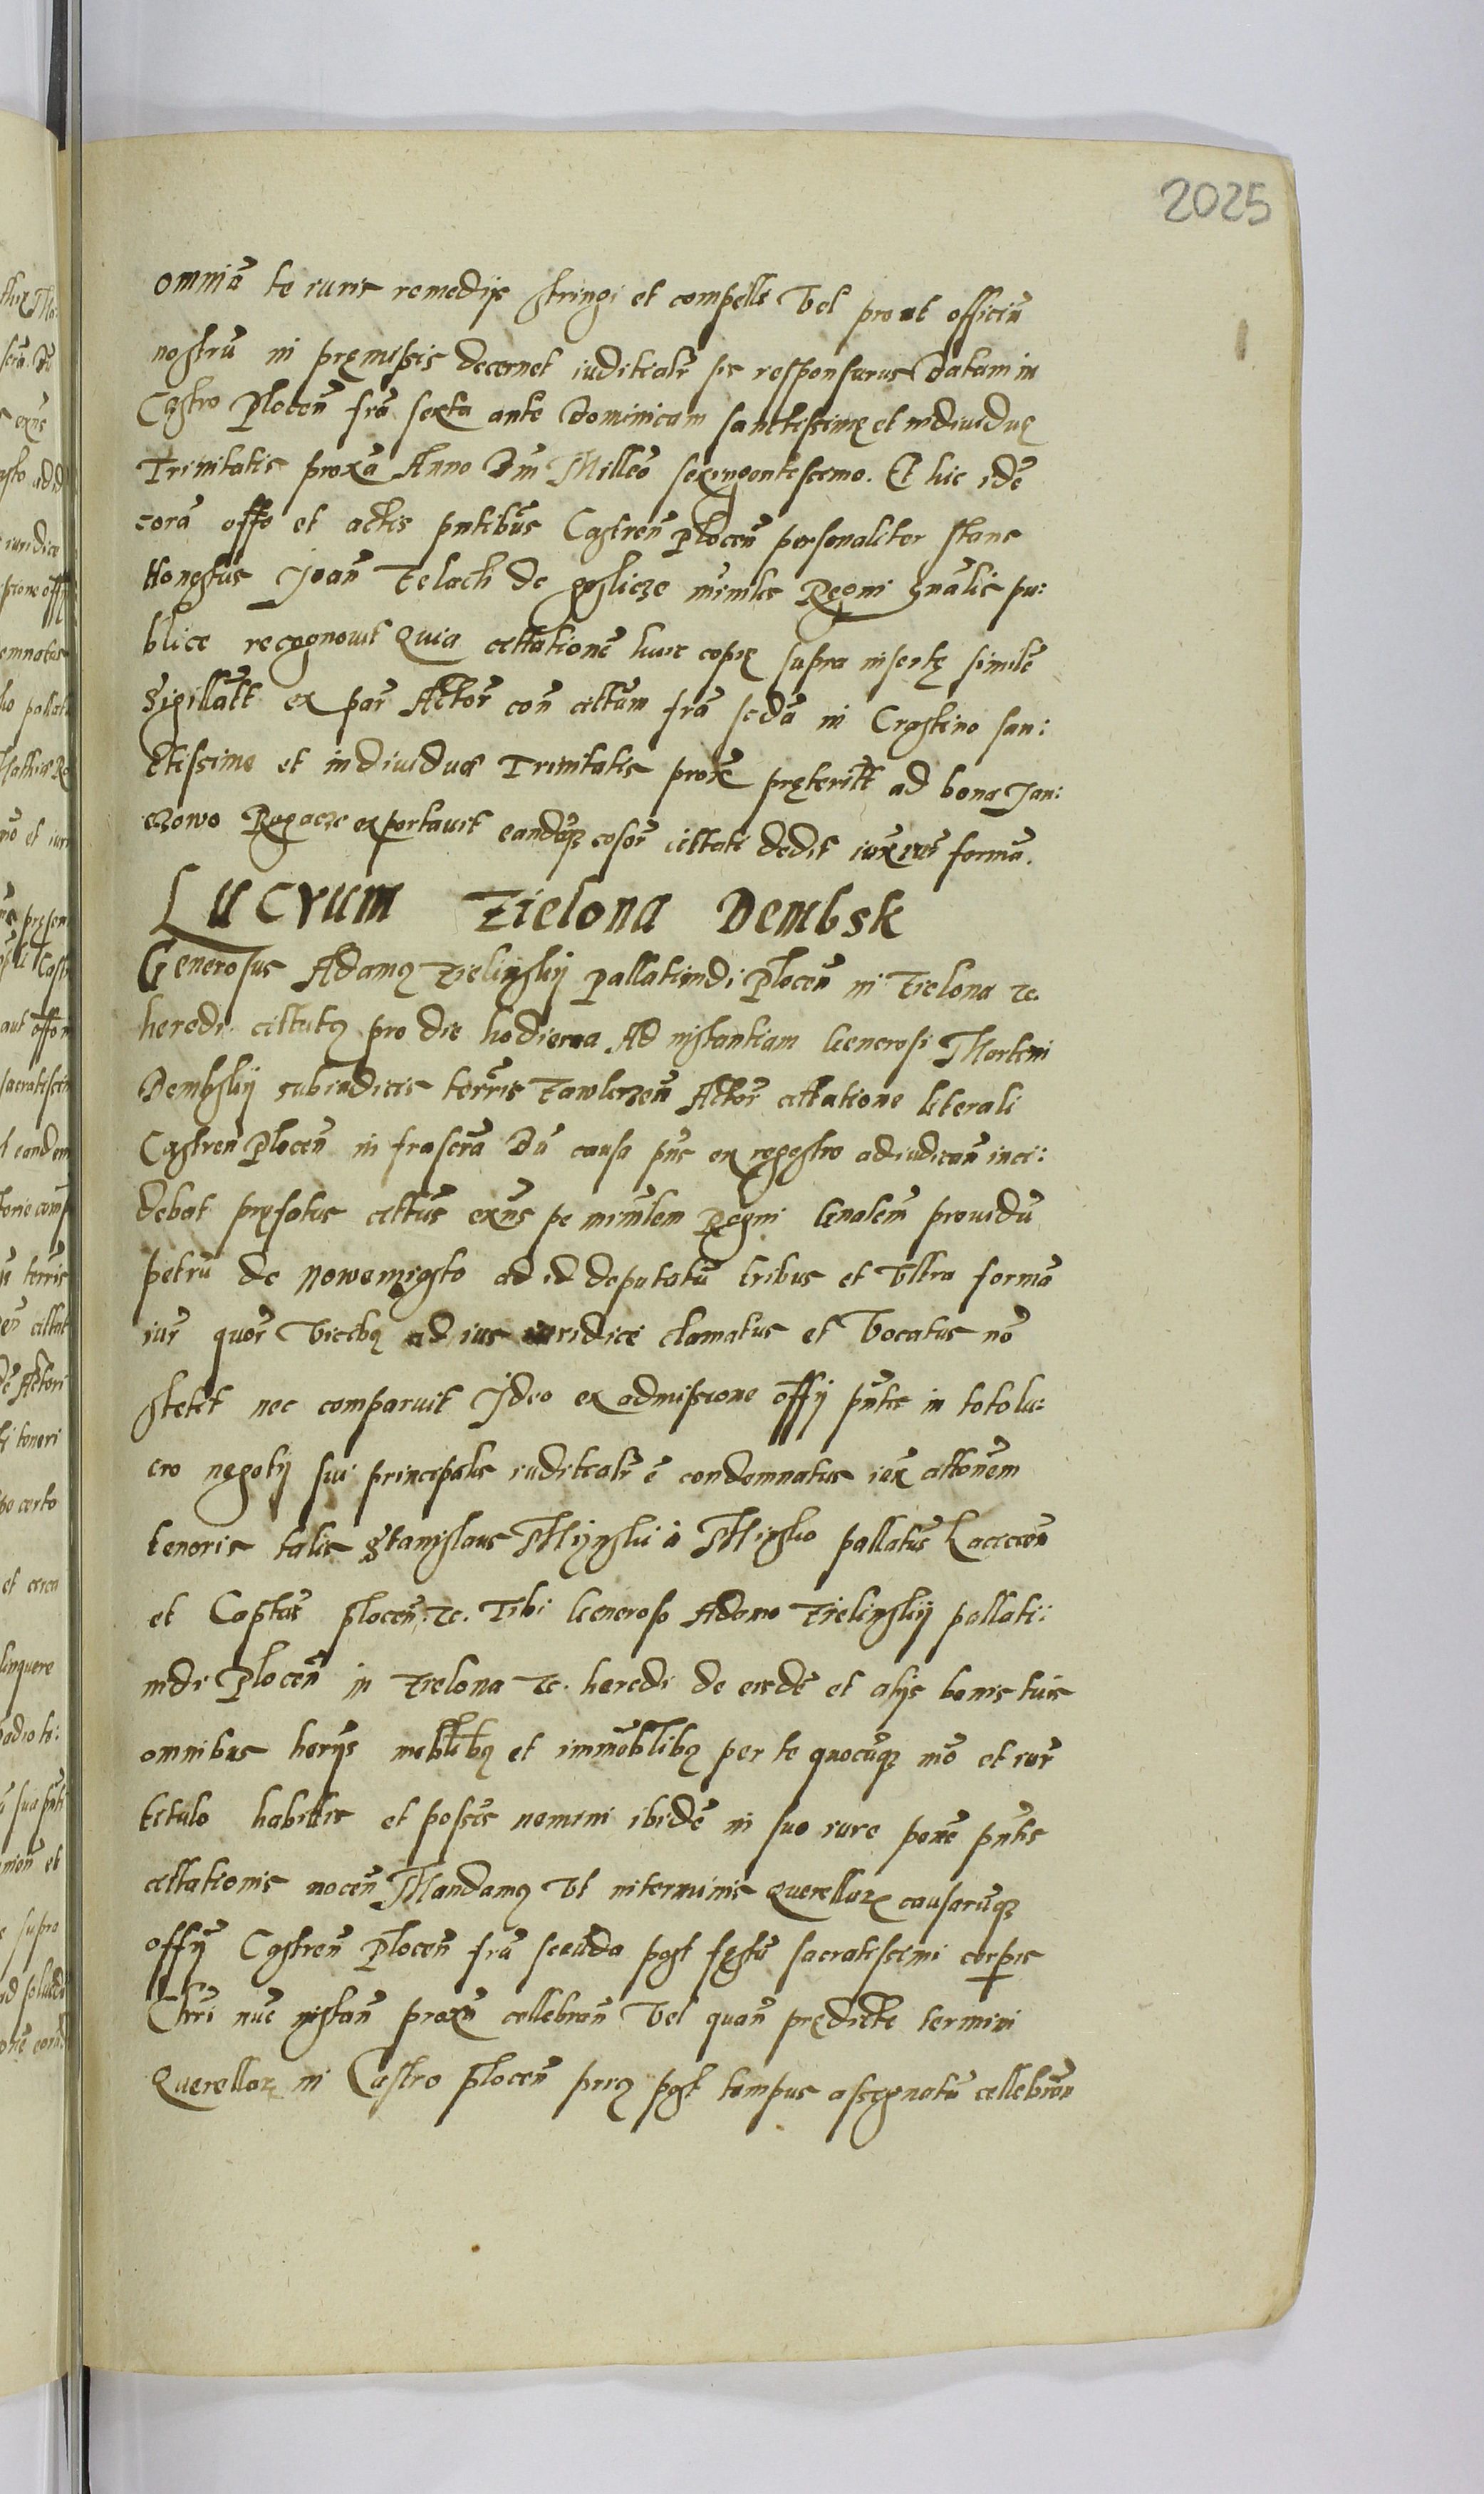 2025
omniā te iuris remedijs stringi et compelli Vel prout officiū
nostrū in pręmissis decernet iuditialr̄ sis responsurus Datam in
Castro Plocen̄ fr̄a sexta ante Dominicam sanctissimę et indiuiduę
Trinitatis proxā Anno Dn̄i Milleō sexingentesimo. Et hic idē
corā offo et actis pn̄tibus Castren̄ Plocen̄ personaliter stans
Honestus Joan̄ Telach de goslicze minl̄is Regni gn̄alis pu:
blice recognouit Quia cittationē huic copię supra insertę similē
Sigillatt̄ ex par̄ Actor̄ con̄ cittum fr̄a scdā in Crastino san:
ctissime et indiuiduæ Trinitatis proxē pręteritt̄ ad bona Jan:
czowo Rogacze exportauit eandq̄ cosor̄ cittati dedit iux̄ iur̄ formā.
Lucrum Zielona Dembsk
Generosus Adamq Zielinskij Pallatinidi Plocen̄ in Zielona etc.
heredi cittutq pro die hodierna Ad instantiam Generosi Martini
Dembskij subiudicis terr̄is Zawkrzen̄ Actor̄ cittatione literali
Castren̄ Plocen̄ infrascr̄a Dū causa pn̄s ex regestro adiudican̄ inci:
debat pręfatus cittus exn̄s pe minl̄em Regni Gn̄alem prouidū
petrū de Nowemiasto ad id deputatū tribus et Vltra formā
iur̄ quor̄ Vicibq ad ius iuridice clamatus et Vocatus nō
stetit nec comparuit Jdeo ex admissione offij pn̄tis in toto lu:
cro negotij sui principalis iuditialr̄ ē condemnatus iux̄ cittōnem
tenoris talis Stanislaus Mijnski à Minsko pallatus Lancicen̄
et Captus plocen̄. etc. Tibi Generoso Adamo Zielinskij pallati:
nidi Plocen̄ in Zielona etc. heredi de eisdē et alijs bonis tuis
omnibus herijs mobl̄ibq et immobl̄ibq per te quocūq mō et iur̄
titulo habitis et possis nemini ibidē in suo iure pon̄e pn̄tis
cittationis nocen̄ Mandamq Vt in terminis Querellar̄ causarūq
offij Castren̄ Plocen̄ fr̄ia secūda post festū sacratissimi corp̄is
Chr̄i nūc instan̄ prox̄ cellebran̄ Vel quan̄ prędicte termini
Querellar̄ in Castro plocen̄ prq post tempus assignatū cellebran̄